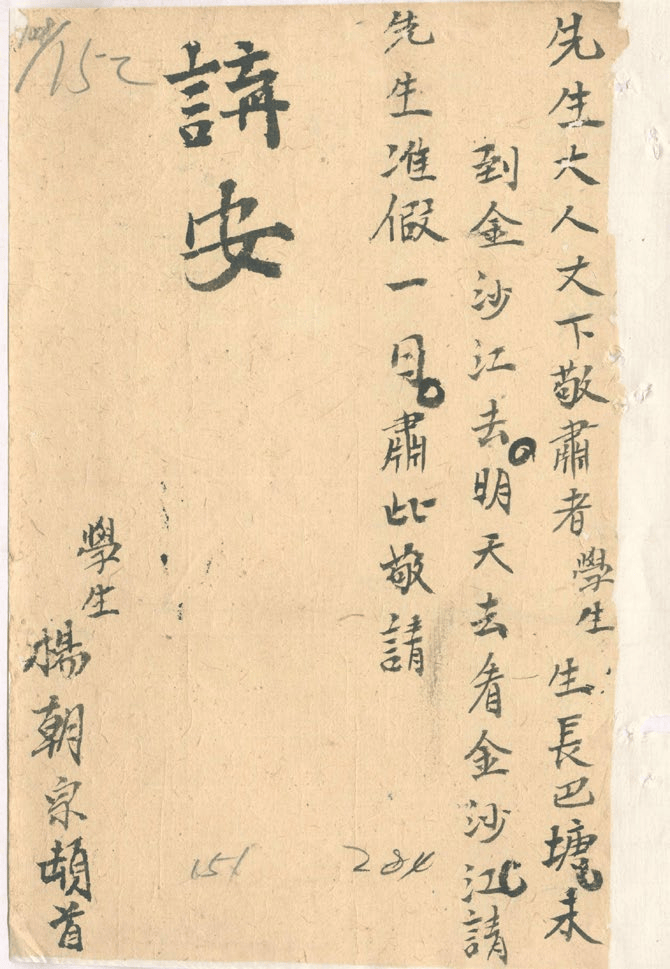 先生大人丈下敬肅者學生生長巴塘。未
到金沙江去。明天去看金沙江。請
先生准假一日。肅此敬請
講安
學生
楊朝宗頓首
152
151
284